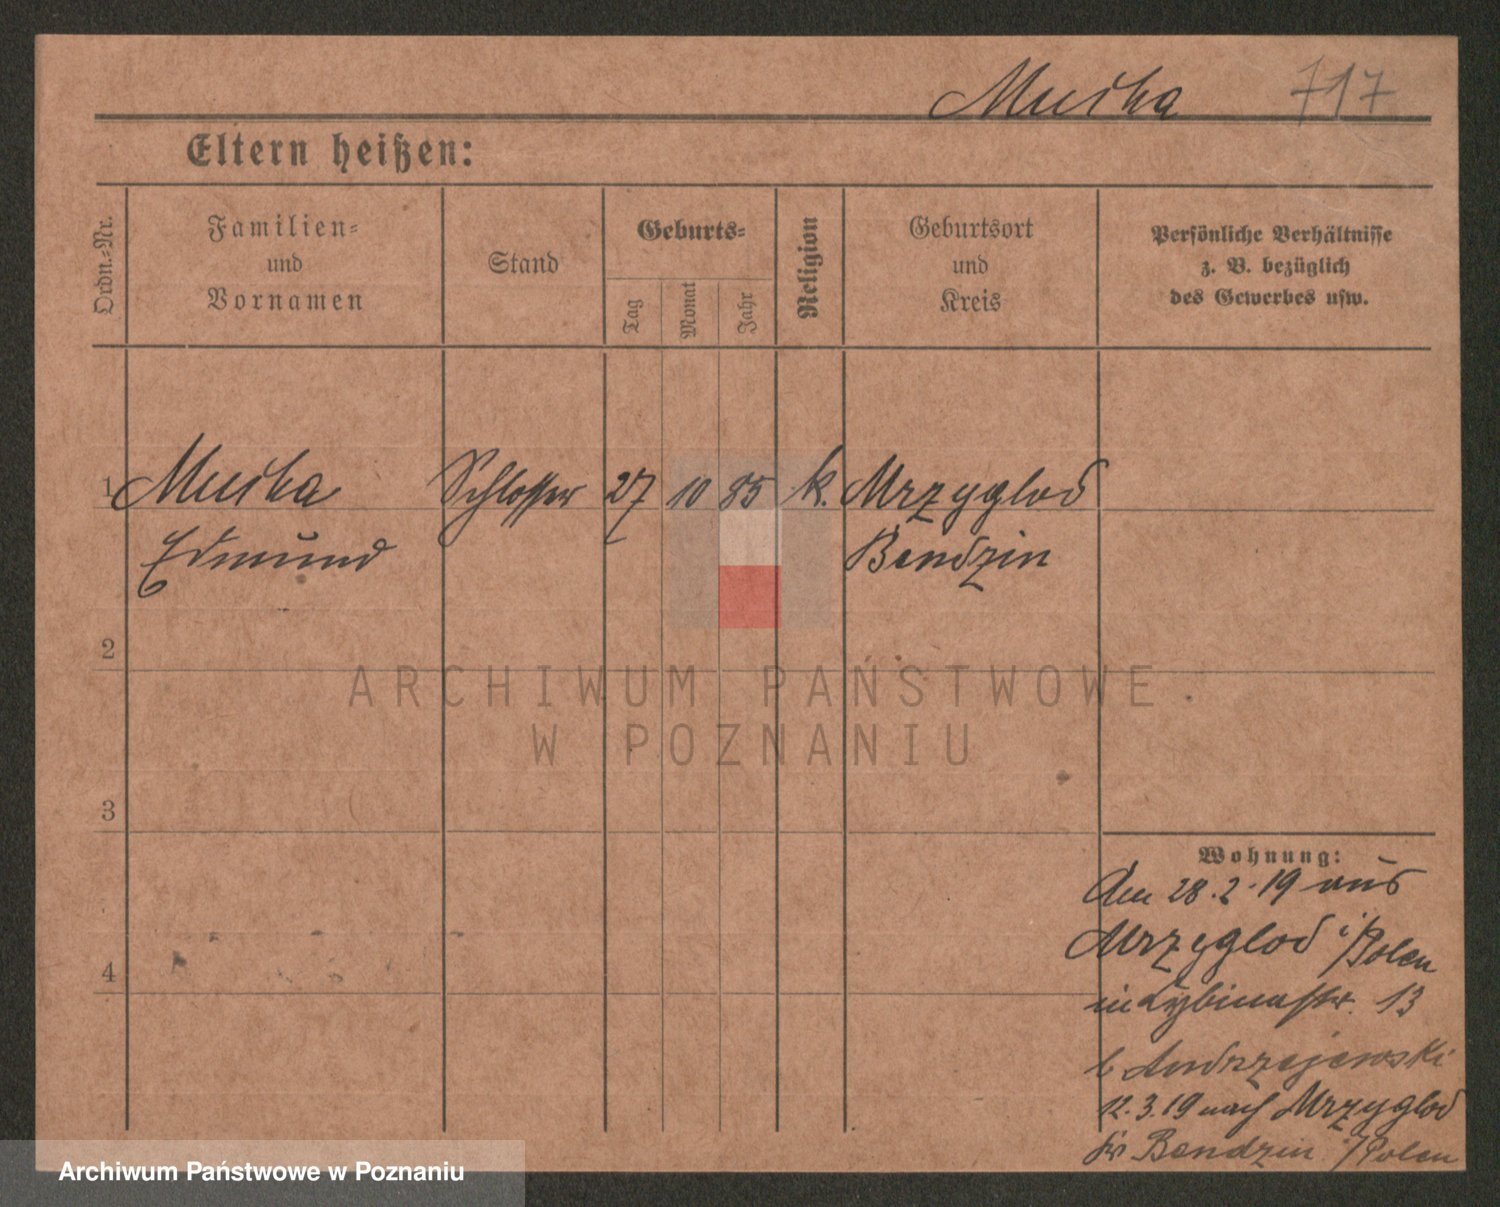 Mucha 717
Eltern heißen:
Ordn.-Nr.
Familien-
und
Vornamen
Stand
Geburts-
Tag
Monat
Jahr
Religion
Geburtsort
und
Kreis
Persönliche Verhältnisse
z. B. bezüglich
des Gewerbes usw.
1 Mucha Schlosser 27 10 85 k. Mrzyglod
Edmund Bendzin
2
3
4
Wohnung:
Am 28.2.19 aus
Mrzyglod i/Polen
in 13
b Andrzejewski
12.3.19 nach Mrzyglod
Kr Bendzin i/Polen
ARCHIWUM PAŃSTWOWE
W POZNANIU
Archiwum Państwowe w Poznaniu